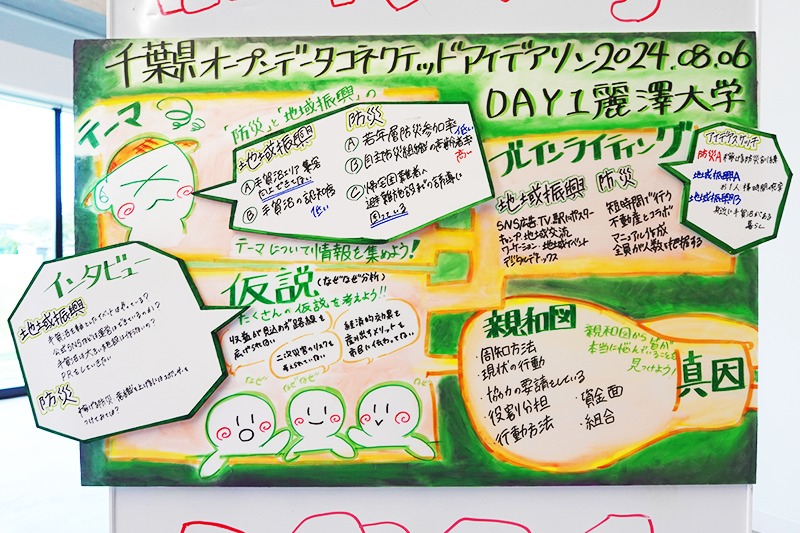 千葉県オープンデータコネクテッドアイデアソン2024.08.06
DAY1麗澤大学
テーマ
「防災」と「地域振興」の
地域振興
Ⓐ手賀沼エリア集客
Ⓑ手賀沼の認知度
低い
防災
Ⓐ若年層防災参加率
低い
Ⓑ自主防災組織の高齢者率
高い
Ⓒ帰宅困難者へ
避難施設までの誘導に
困っている
テーマについて情報を集めよう!
ブレインライティング
地域振興
SNS広告TV駅にポスター
キャンプ・地域交流
ワーケーション・地域イベント
デジタルデトックス
防災
短時間で行う
不動産とコラボ
マニュアル作成
全員が人数を把握する
アイデアスケッチ
防災A
地域振興A
地域振興B
インタビュー
地域振興
PRをしていきたい
防災
仮説(なぜなぜ分析)
たくさんの仮説を考えよう!!
収益が見込めず路線を
広げられない
二次災害のリスクを
考えられていない
経済的効果を
産み出すメリットを
市民にイメージない
なぜ
なぜなぜ
なぜ
親和図
・周知方法
・現状の行動
・協力の要請をしている
・役割分担
・行動方法
・資金面
・組合
親和図から皆が
本当に悩んでいることを
見つけよう!
真因